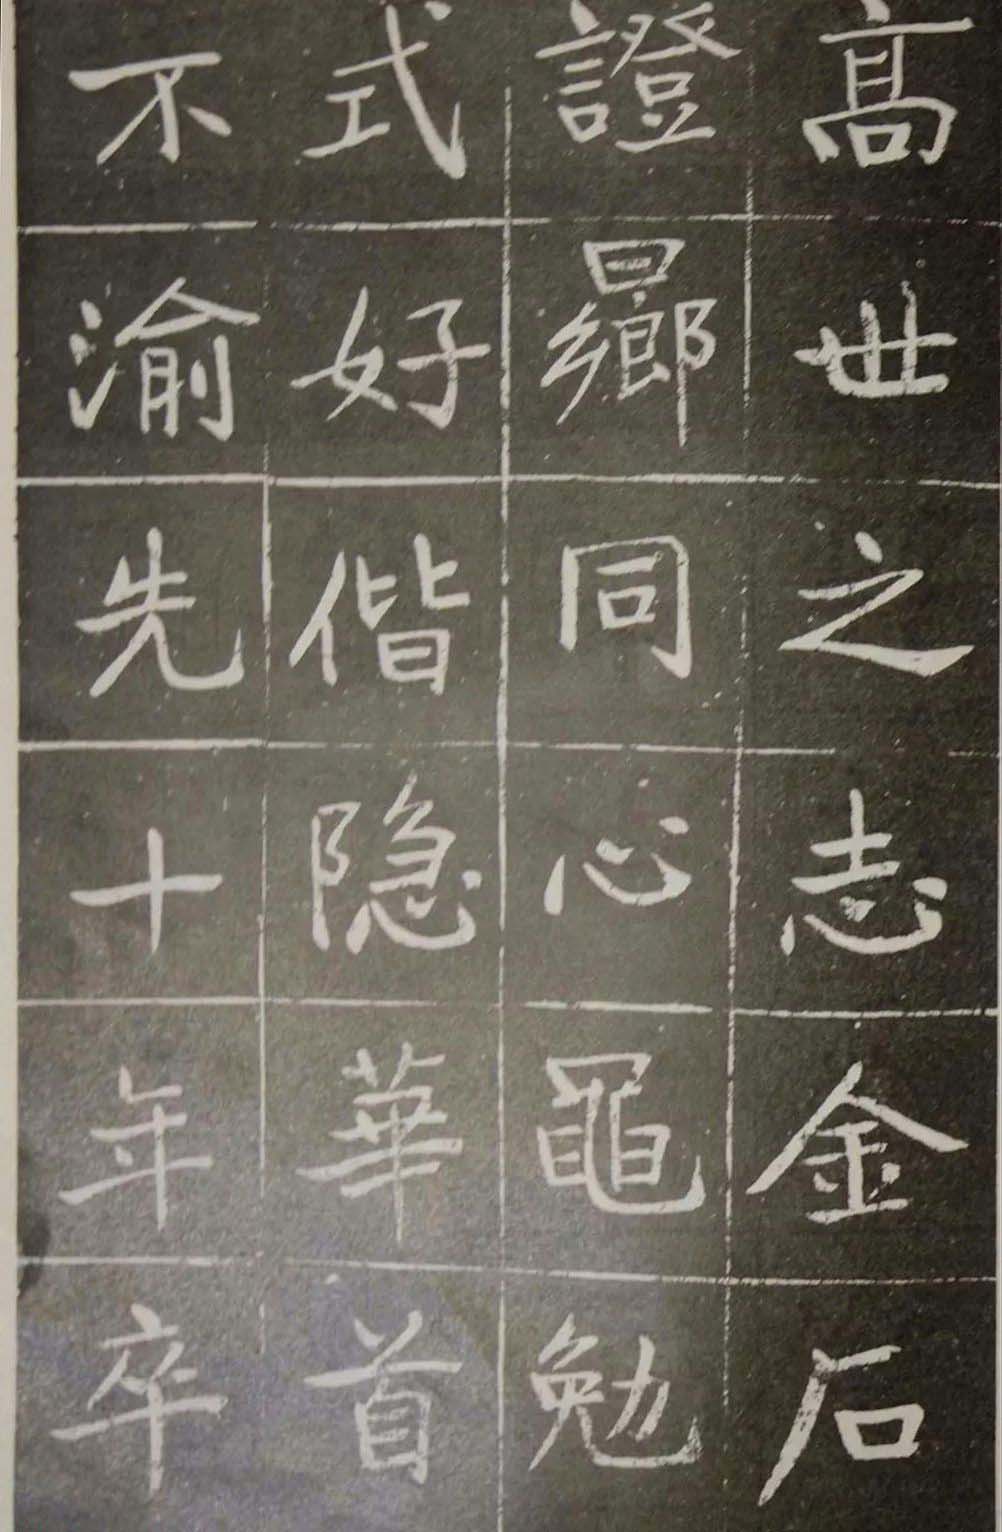 髙世之志金石
證曏同心黽勉
式好偕隐華首
不渝先十年卒